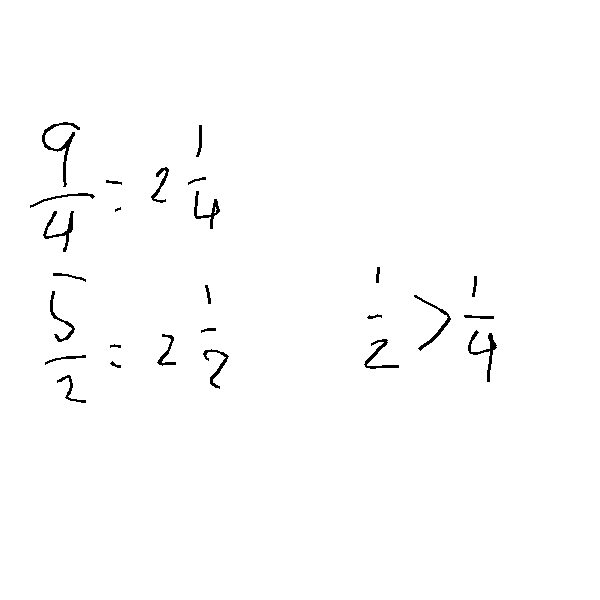 9/4 = 2 1/4
5/2 = 2 1/2
1/2 > 1/4